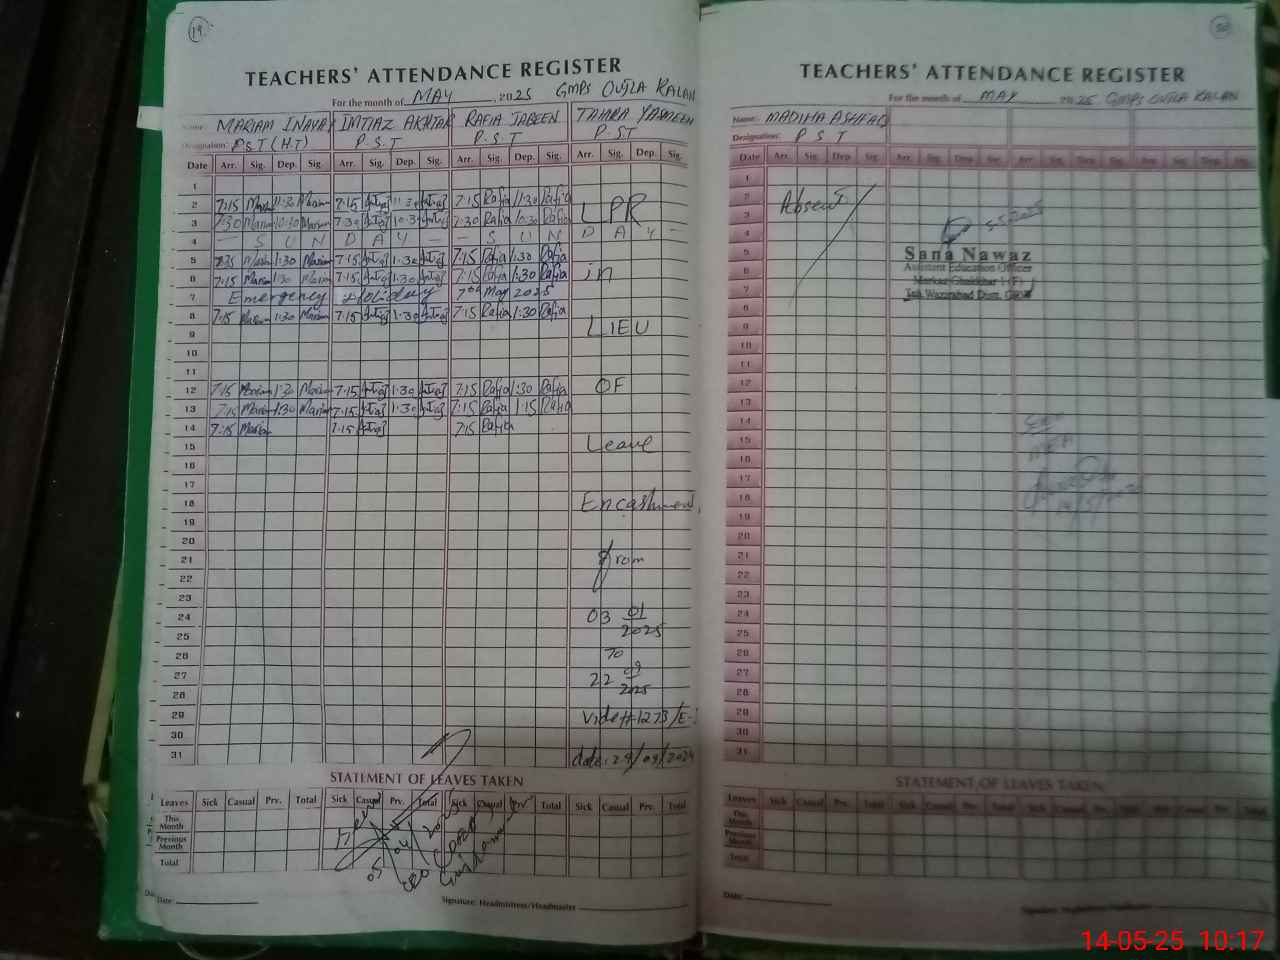 19
TEACHERS' ATTENDANCE REGISTER
For the month of MAY, 2025 GMPS OUJLA KALAN
Name: MARIAM INAYAT IMTIAZ AKHTAR RAFIA JABEEN TAHIRA YASMEEN
Designation: PST (H.T) P.S.T P.S.T P.ST
Date Arr. Sig. Dep. Sig. Arr. Sig. Dep. Sig. Arr. Sig. Dep. Sig. Arr. Sig. Dep. Sig.
1
2 7:15 11:30 7:15 7:15 Rafia 11:30 Rafia
3 7:30 10:30 7:30 10:30 7:30 Rafia 10:30 Rafia LPR
4 — S U N D A Y — — S U N D A Y —
5 1:30 7:15 1:30 7:15 Rafia 1:30 Rafia
6 7:15 1:30 7:15 1:30 7:15 Rafia 1:30 Rafia in
7 Emergency Holiday 7th May 2025
8 7:15 1:30 7:15 1:30 7:15 Rafia 1:30 Rafia LIEU
9
10
11
12 7:15 1:30 7:15 1:30 7:15 Rafia 1:30 Rafia OF
13 7:15 1:30 7:15 1:30 7:15 Rafia 1:15 Rafia
14 7:15 7:15 7:15 Rafia
15 Leave
16
17
18 Encashment,
19
20
21 from
22
23
24 03 01/2025
25
26 TO
27 22 09/2025
28
29 Vide # 1273/E-
30
31 date: 29/09/2024
STATEMENT OF LEAVES TAKEN
Leaves Sick Casual Prv. Total Sick Casual Prv. Total Sick Casual Prv. Total Sick Casual Prv. Total
This Month
Previous Month
Total
Date: Signature: Headmistress/Headmaster
TEACHERS' ATTENDANCE REGISTER
For the month of MAY 2025 GMPS OUJLA KALAN
Name: MADIHA ASHFAQ
Designation: P S T
Date Arr. Sig. Dep. Sig. Arr. Sig. Dep. Sig. Arr. Sig. Dep. Sig. Arr. Sig. Dep. Sig.
1
2 Absent
3
4
5 Sana Nawaz
6 Assistant Education Officer
7 Markaz Ghakkhar 1 (F)
Teh. Wazirabad Distt. GRW
8
9
10
11
12
13
14
15
16
17
18
19
20
21
22
23
24
25
26
27
28
29
30
31
STATEMENT OF LEAVES TAKEN
Leaves Sick Casual Prv. Total Sick Casual Prv. Total Sick Casual Prv. Total Sick Casual Prv. Total
This Month
Previous Month
Total
Date:
14-05-25 10:17